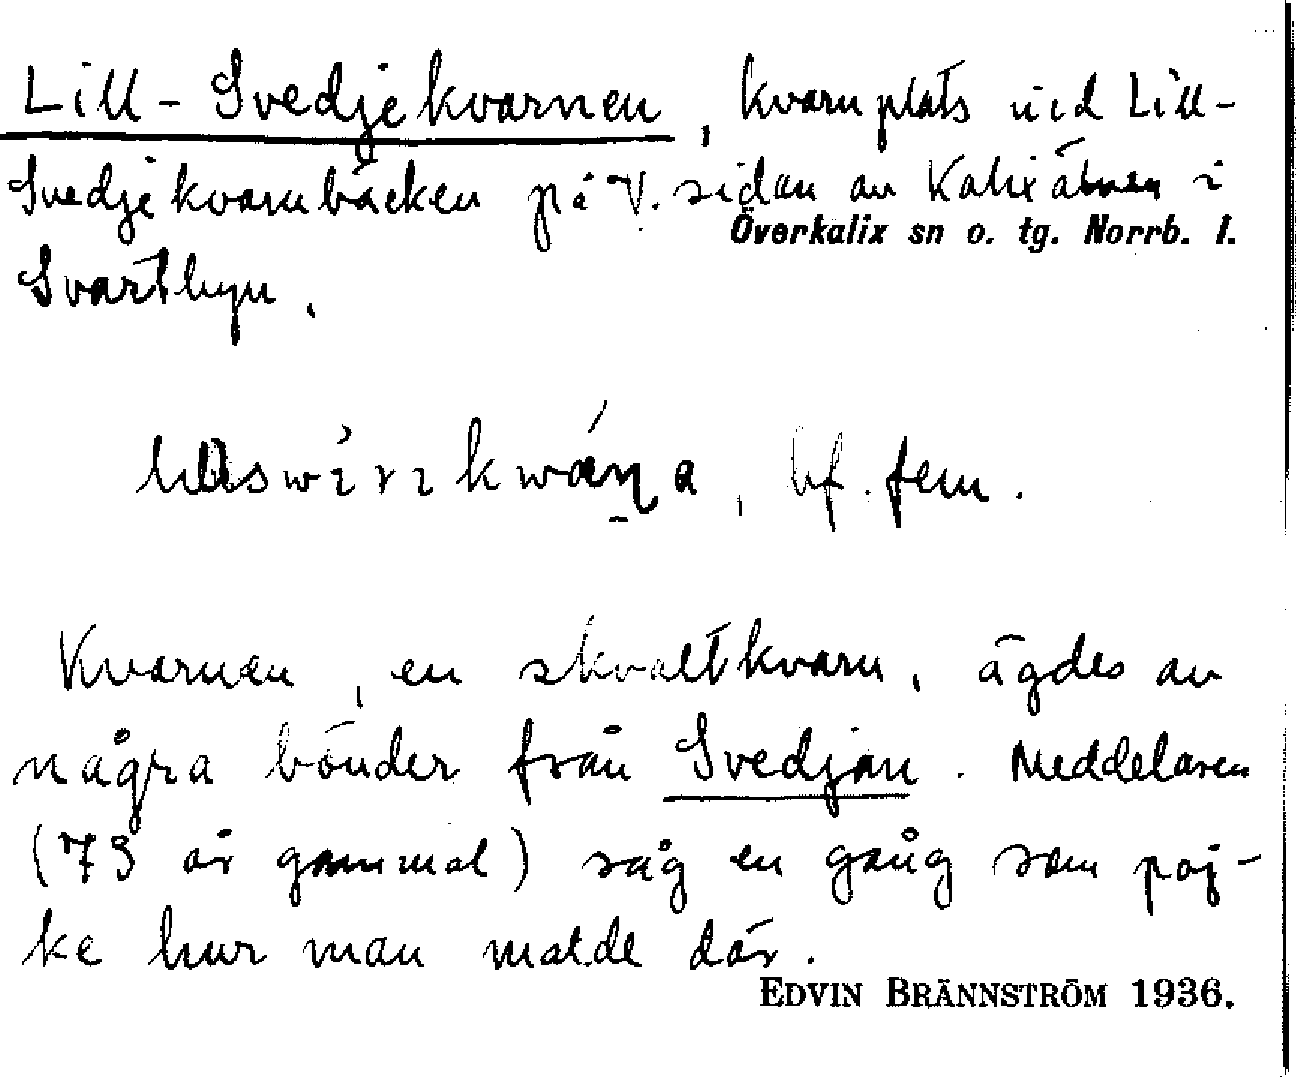 Lill-Svedjekvarnen, kvarnplats vid Lill-
Svedjekvarnbäcken på V. sidan av Kalixälven i
Överkalix sn o. tg. Norrb. l.
Svartbyn.
bf. fem.
Kvarnen, en skvaltkvarn, ägdes av
några bönder från Svedjan. Meddelaren
(73 år gammal) såg en gång som poj-
ke hur man malde där.
EDVIN BRÄNNSTRÖM 1936.